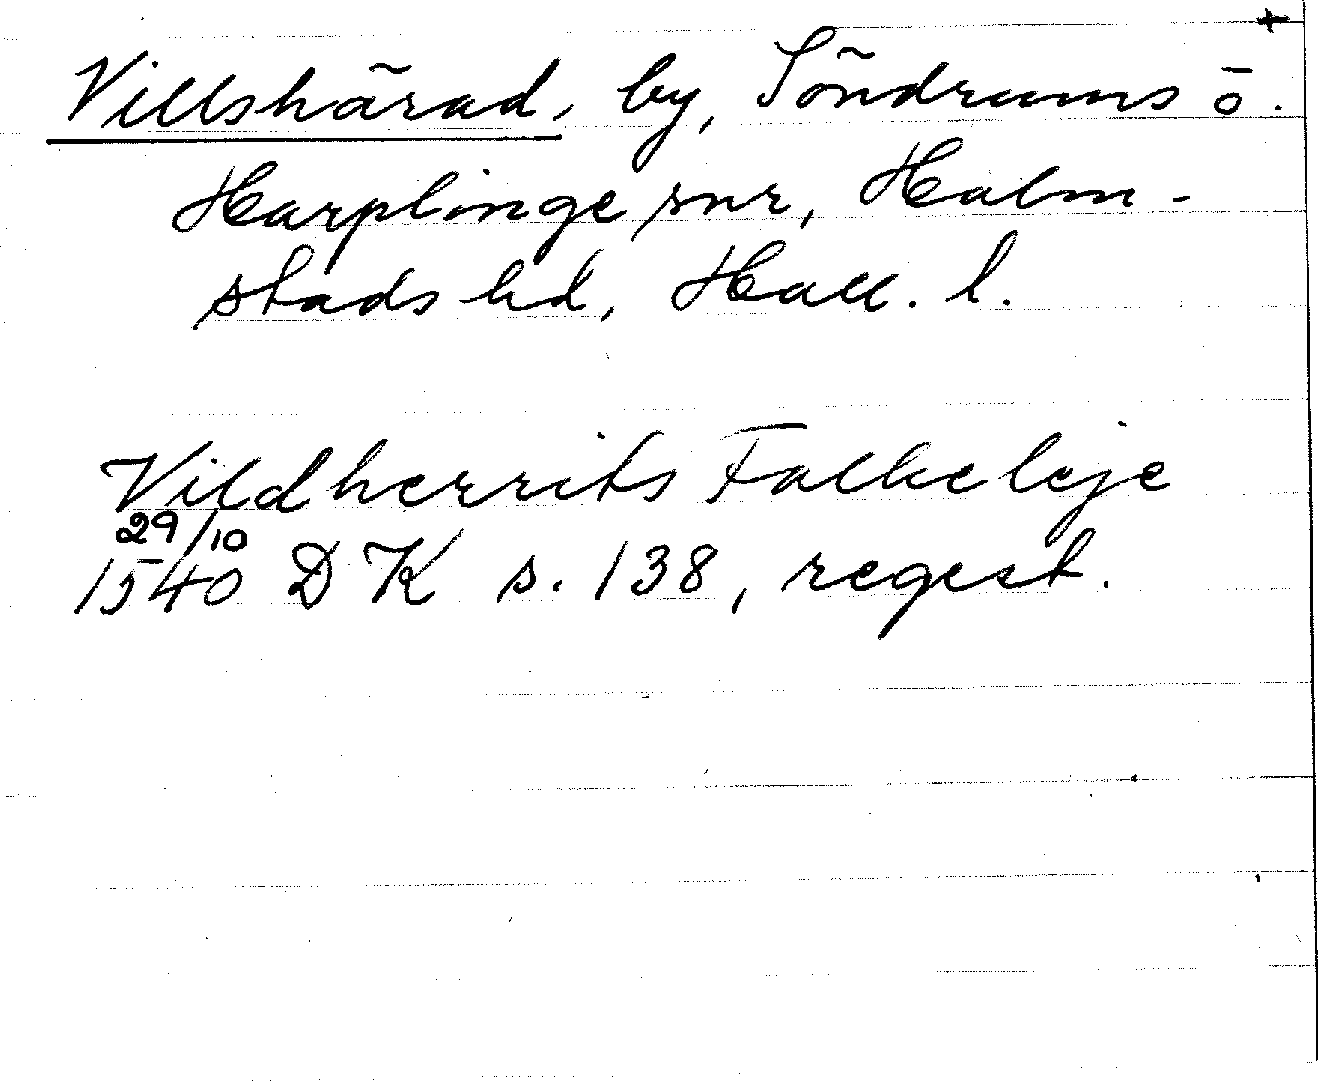 +
Villshärad, by, Söndrums ö.
Harplinge snr, Halm-
stads hd, Hall. l.
Vildherrits Falkeleje
29/10
1540 DK s. 138, regest.